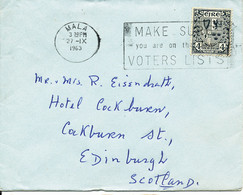 MALA
3 15PM
27-IX
1963
MAKE SURE
you are on the
VOTERS LISTS
EIRE
Mr. Mrs R. Eisendrath,
Hotel Cockburn,
Cockburn St.,
Edinburgh
Scotland.